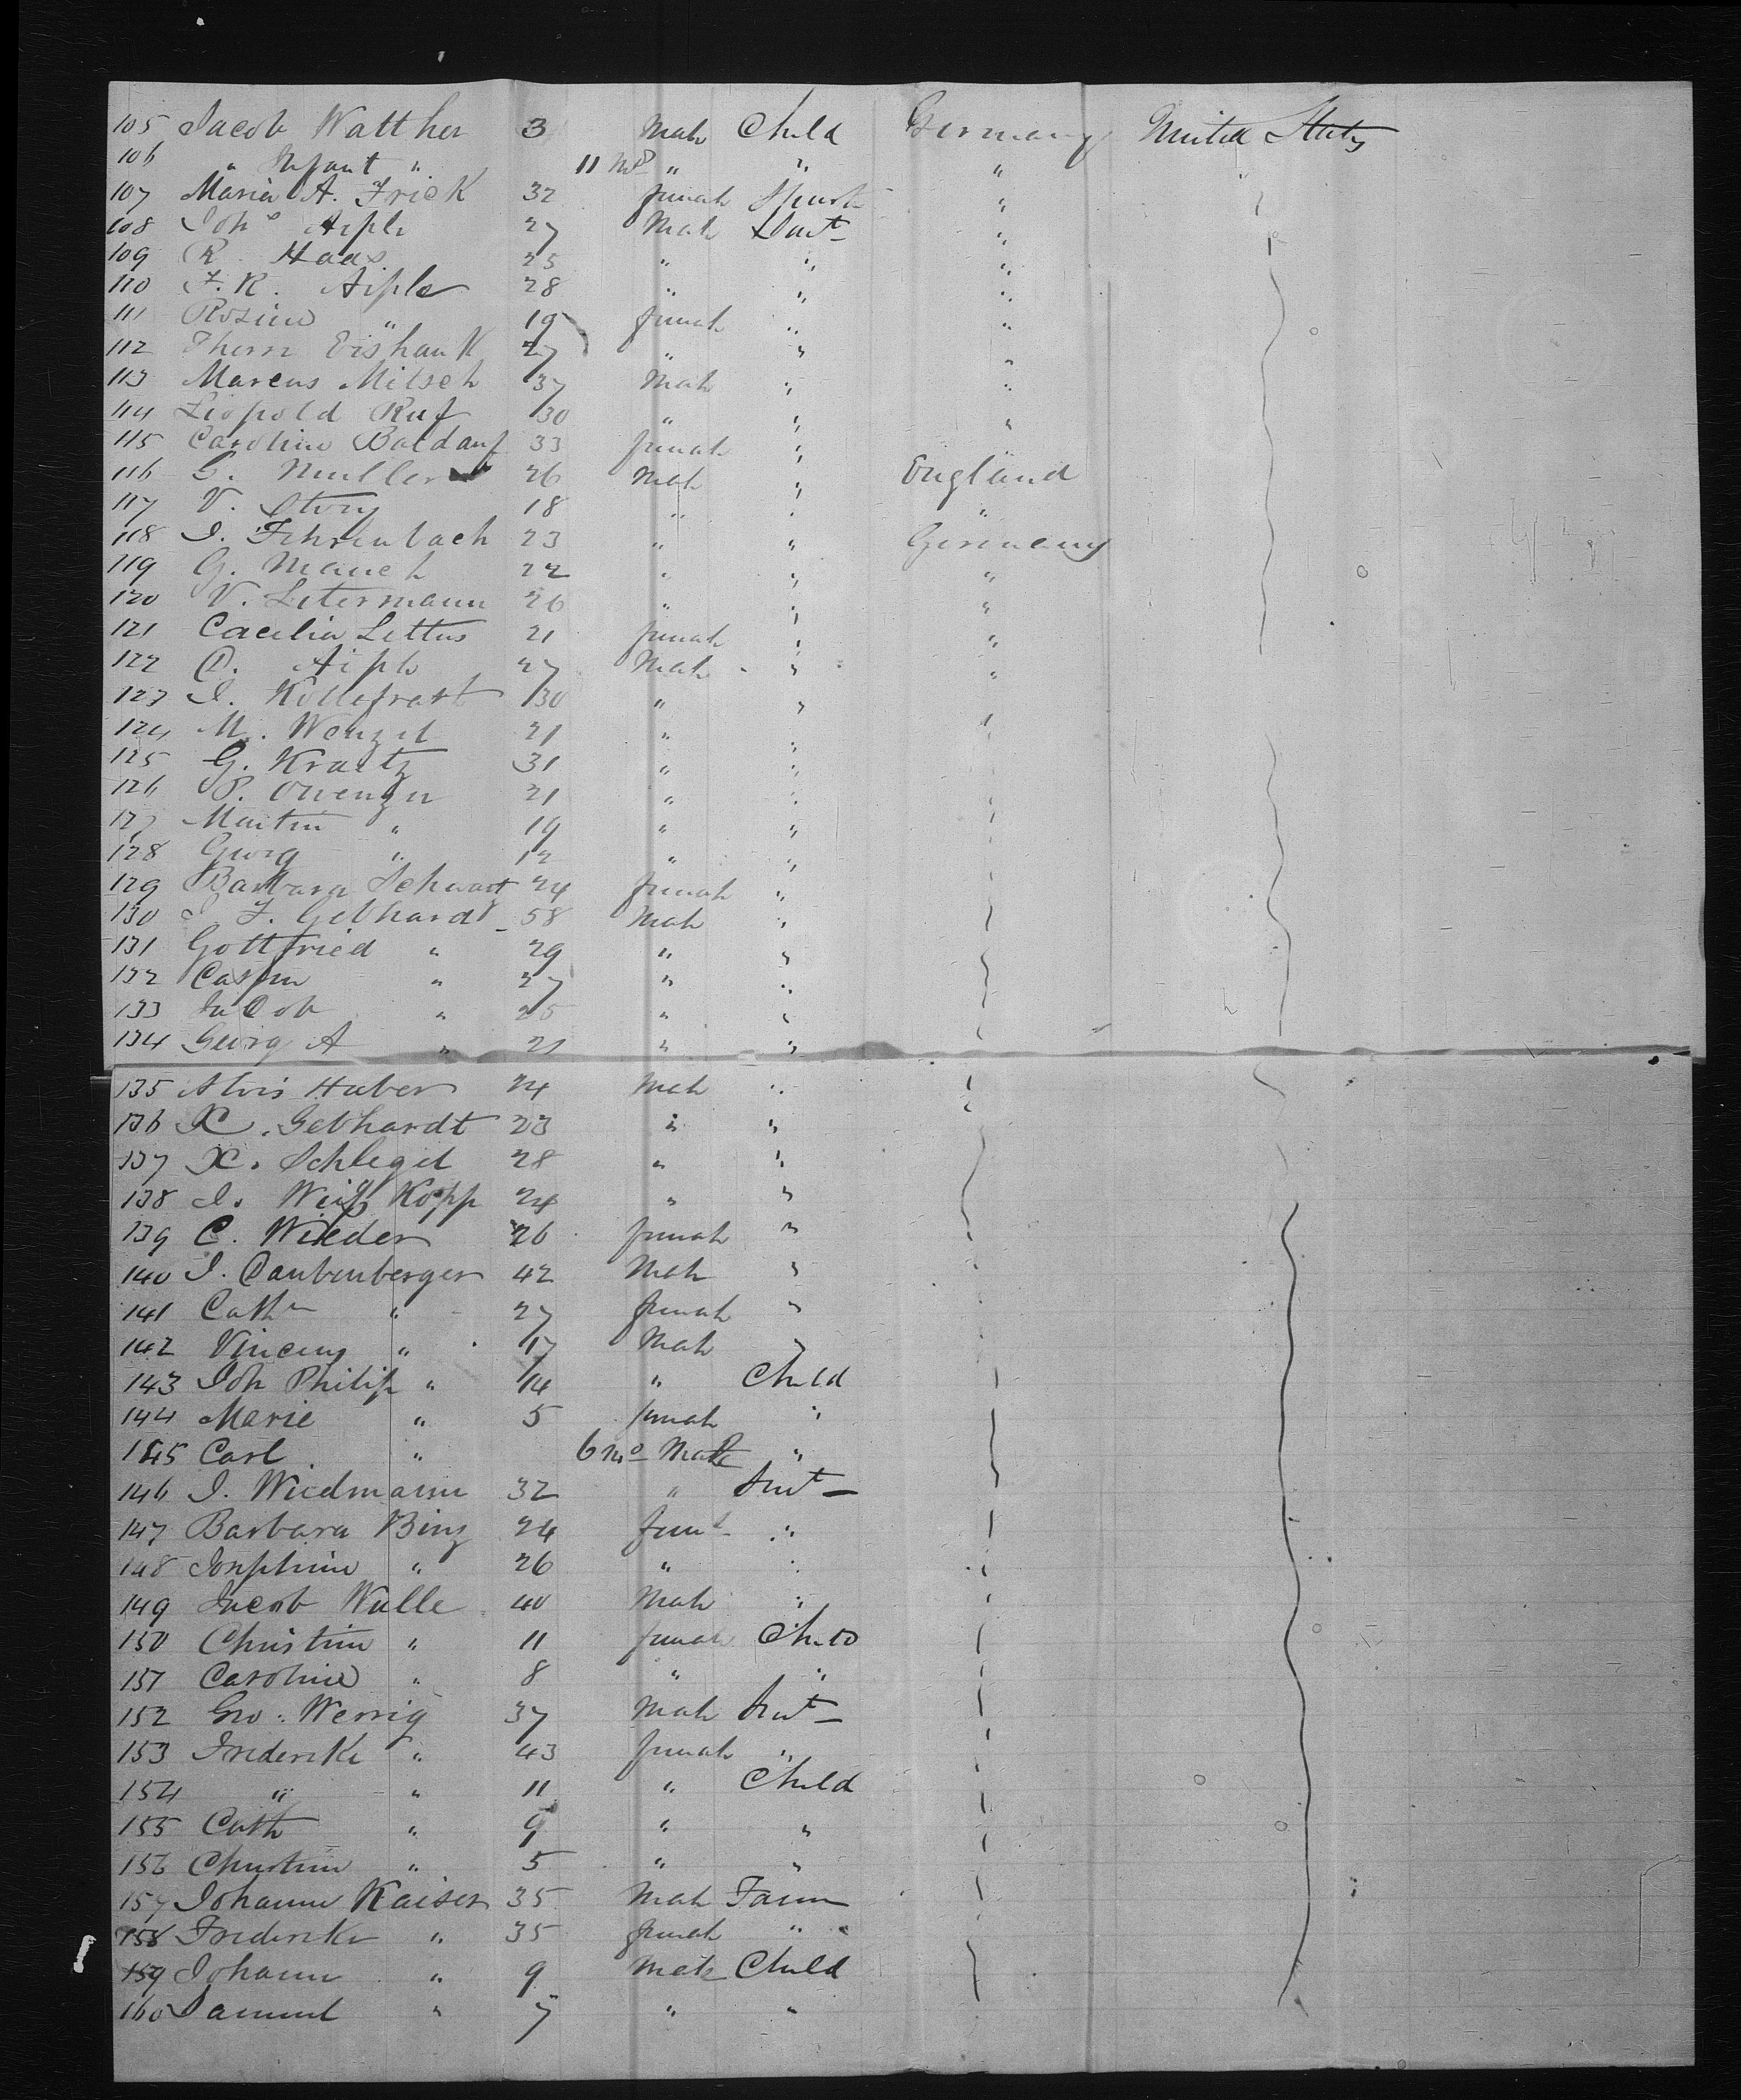 105 Jacob Watther 3 Male Child Germany United States
106 " Infant " 11 Mos " " " "
107 Maria A. Frick 32 female "
108 Joh Aiple 27 Male "
109 R. Haas 25 " " "
110 F. K. Aiple 28 " " "
111 Rosine " 19 female " "
112 Eishauk 27 " " "
113 Marcus Mitsch 37 Male " "
114 Liopold Ruf 30 " " "
115 Caroline Baldauf 33 female "
116 G. Muller 26 Male " England
117 V. Story 18 " " "
118 J. Fehrenbach 23 " " Germany
119 G. Mauch 22 " " "
120 V. Letermann 26 " " "
121 Cacilia Lettus 21 female " "
122 C. Aiple 27 Male " "
123 J. 30 " "
124 M. Wenzel 21 " "
125 G. Kraetz 31 " "
126 P. 21 " "
127 Martin " 19 " "
128 Georg " 12 " "
129 Barbara Schwart 24 female "
130 J F. Gebhardt 58 Male "
131 Gottfried " 29 " "
132 Casper " 27 " "
133 Jacob " 25 " "
134 Georg A " 21 " "
135 Alois Huber 24 Male "
136 X. Gebhardt 23 " "
137 X. Schlegel 28 " "
138 J. Weiß Kopp 24 " "
139 C. Wieder 26 female "
140 J. Daubenberger 42 Male "
141 Cathn " 27 female "
142 Vincenz " 17 Male "
143 Joh Philip " 14 " Child
144 Marie " 5 female "
145 Carl " 6 mo Male "
146 J. Wiedmann 32 "
147 Barbara Binz 24 "
148 Josephine " 26 " "
149 Jacob Walle 40 Male "
150 Christine " 11 female Child
151 Caroline " 8 " "
152 Geo. Werrig 37 Male
153 Frederike " 43 female "
154 " " 11 " Child
155 Cath " 9 " "
156 Christine " 5 " "
157 Johann Kaiser 35 Male Farm
158 Frederike " 35 female "
159 Johann " 9 Male Child
160 Samuel " 7 " "